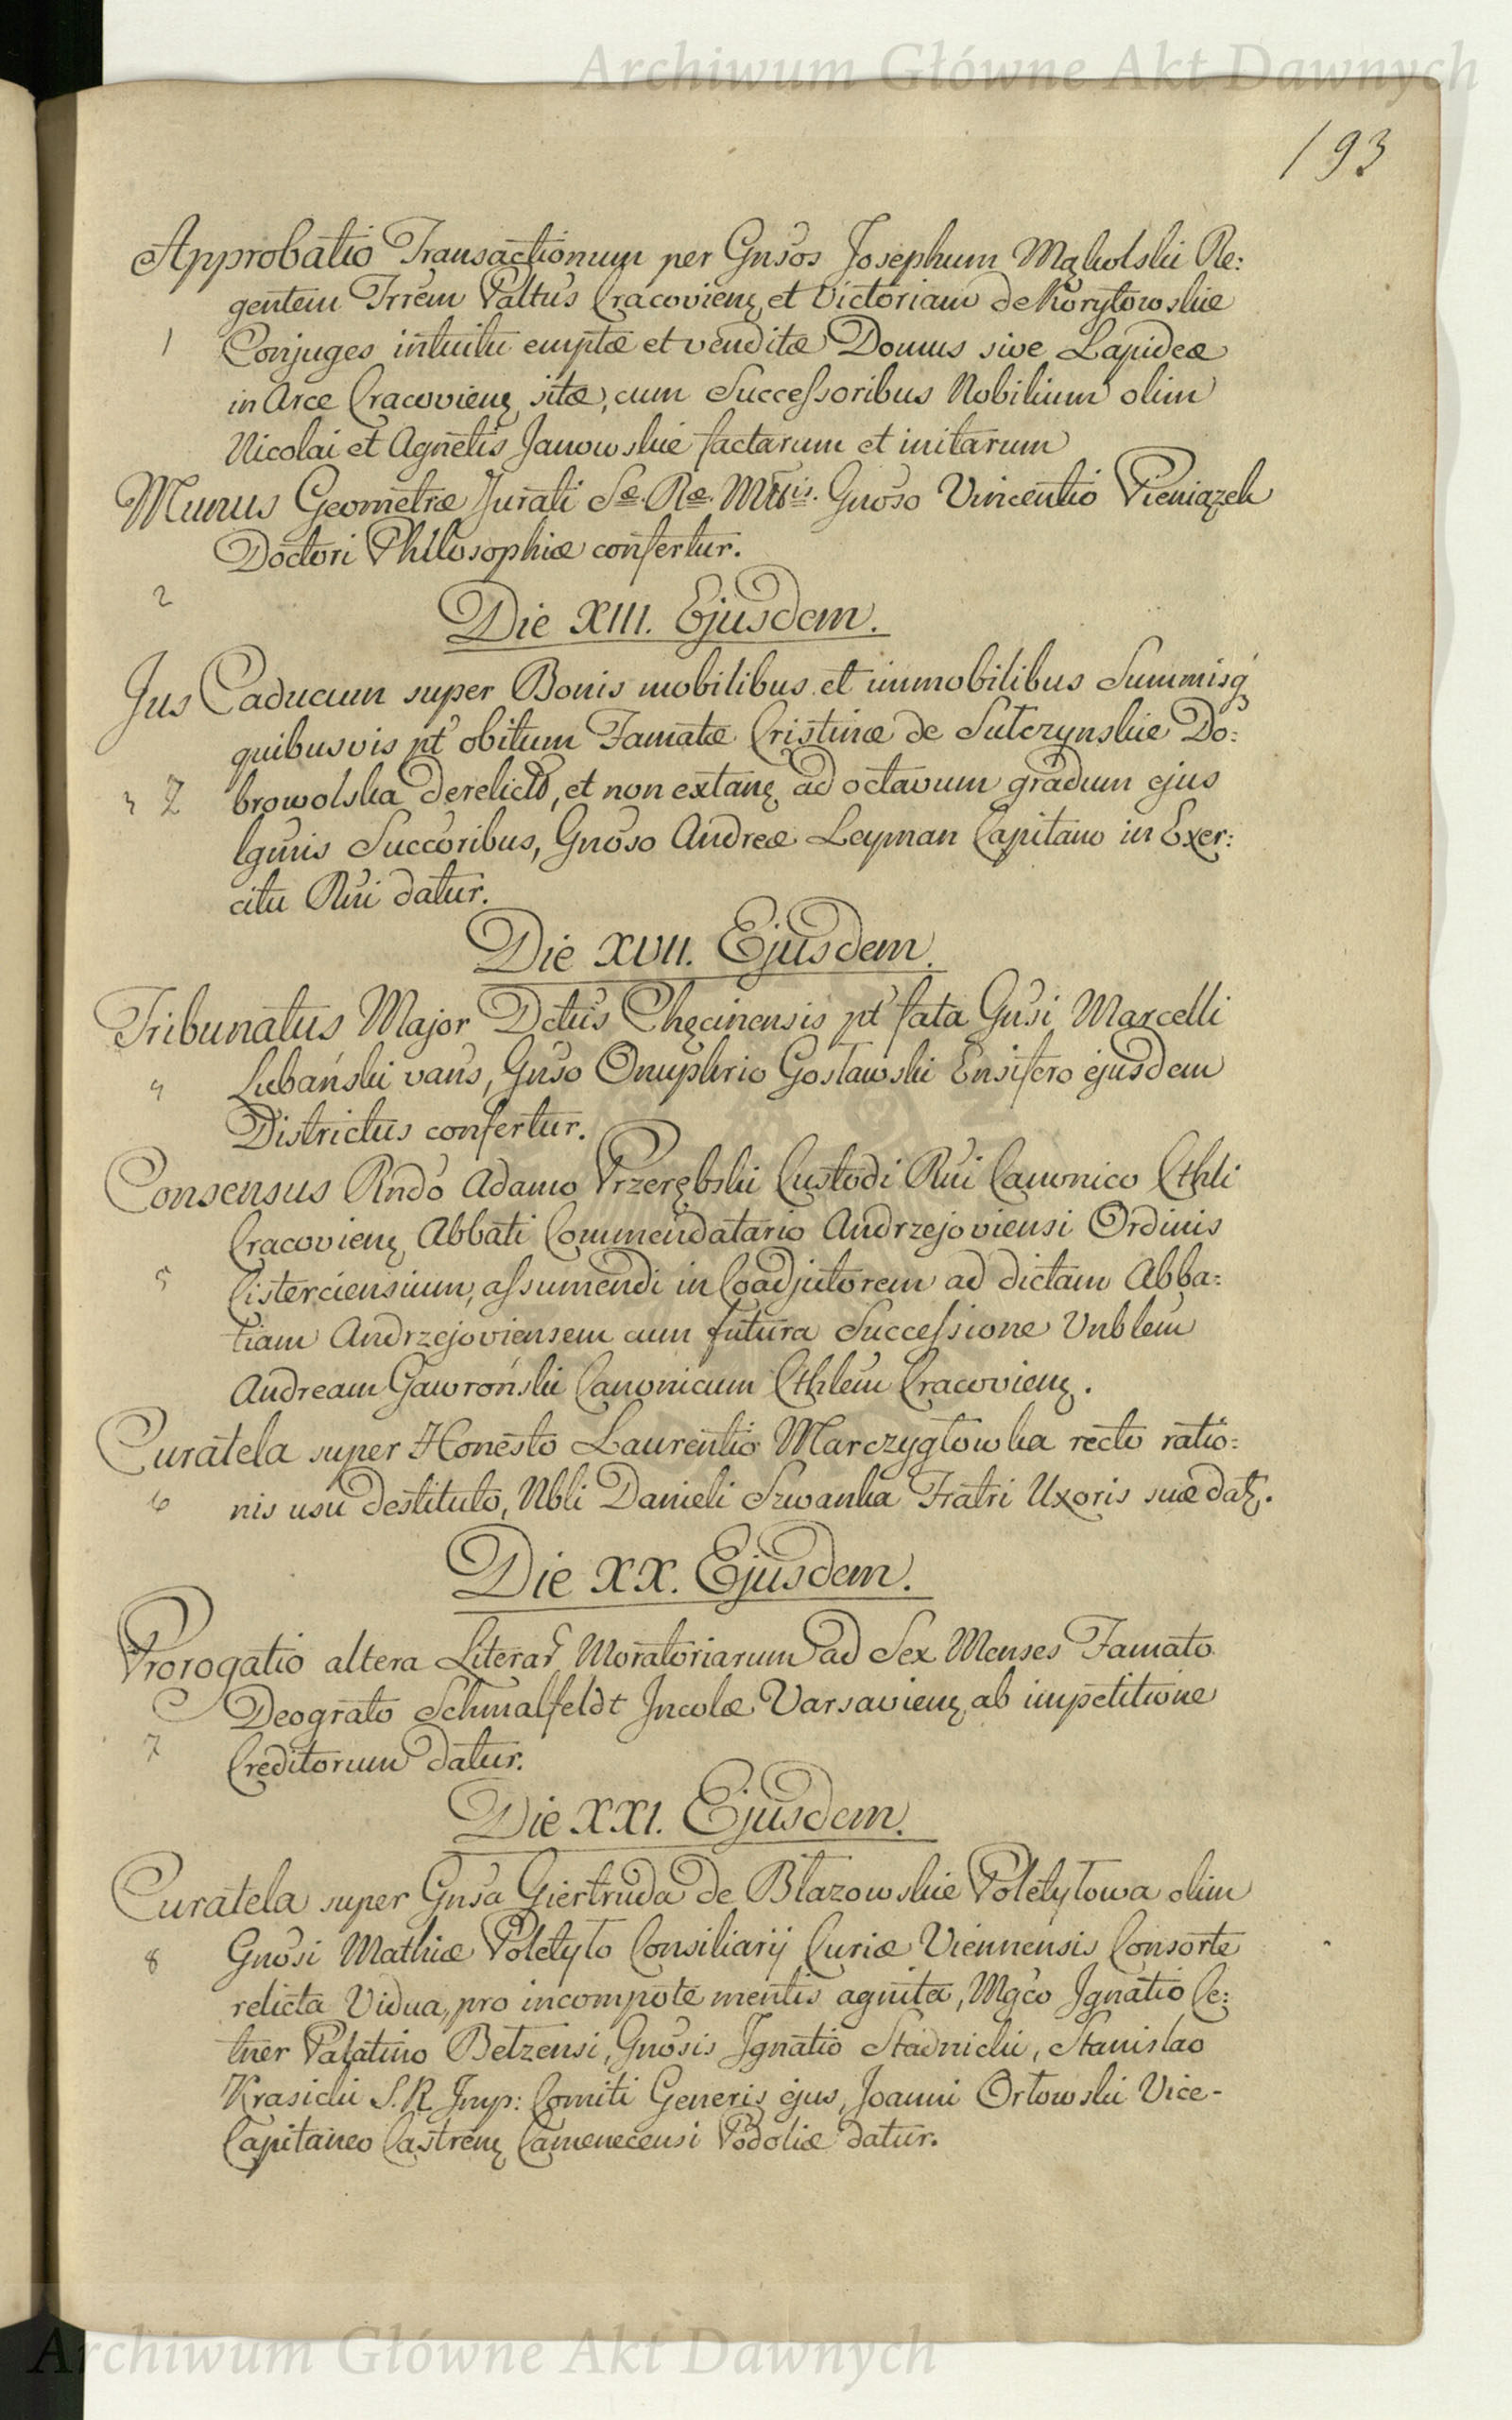 Archiwum Główne Akt Dawnych
193
Approbatio Transactionum per Gnsos Josephum Mąkolski Re:
gentem Trrem Paltus Cracovien, et Victoriam de Korytowskie
1 Conjuges intuitu emptæ et venditæ Domus sive Lapideæ
in Arce Cracovien, sitæ, cum Successoribus Nobilium olim
Nicolai et Agnetis Janowskie factarum et initarum
Munus Geometræ Jurati Sæ. Ræ. Mttis. Gnoso Vincentio Pieniązek
Doctori Philosophiæ confertur.
2
Die XIII. Ejusdem.
Jus Caducum super Bonis mobilibus et immobilibus Summisq
quibusvis pt obitum Famatæ Cristinæ de Sutczynskie Do:
3 Z browolska derelictis, et non extan, ad octavum gradum ejus
lgmis Succoribus, Gnoso Andreæ Leyman Capitano in Exer:
citu Rni datur.
Die XVII. Ejusdem.
Tribunatus Major Dctus Chęcinensis pt fata Gnsi Marcelli
4 Lubański vans, Gnso Onuphrio Gosławski Ensifero ejusdem
Districtus confertur.
Consensus Rndo Adamo Przerębski Custodi Rni Canonico Cthli
Cracovien, Abbati Commendatario Andrzejoviensi Ordinis
5 Cisterciensium, assumendi in Coadjutorem ad dictam Abba:
tiam Andrzejoviensem cum futura Successione Vnblem
Andream Gawroński Canonicum Cthlem Cracovien.
Curatela super Honesto Laurentio Marczygłowka recto ratio:
6 nis usu destituto, Nbli Danieli Szwanka Fratri Uxoris suæ dat.
Die XX. Ejusdem.
Prorogatio altera Literar Moratoriarum ad Sex Menses Famato
Deograto Schmalfeldt Incolæ Varsavien, ab impetitione
7 Creditorum datur.
Die XXI. Ejusdem.
Curatela super Gnsa Giertruda de Błazowskie Poletyłowa olim
8 Gnosi Mathiæ Poletyło Consiliarij Curiæ Viennensis Consorte
relicta Vidua, pro incompote mentis agnita, Mgco Ignatio Ce:
tner Palatino Bełzensi, Gnosis Ignatio Stadnicki, Stanislao
Krasicki S. R. Imp: Comiti Generis ejus, Joanni Orłowski Vice-
Capitaneo Castren, Camenecensi Podoliæ datur.
Archiwum Główne Akt Dawnych